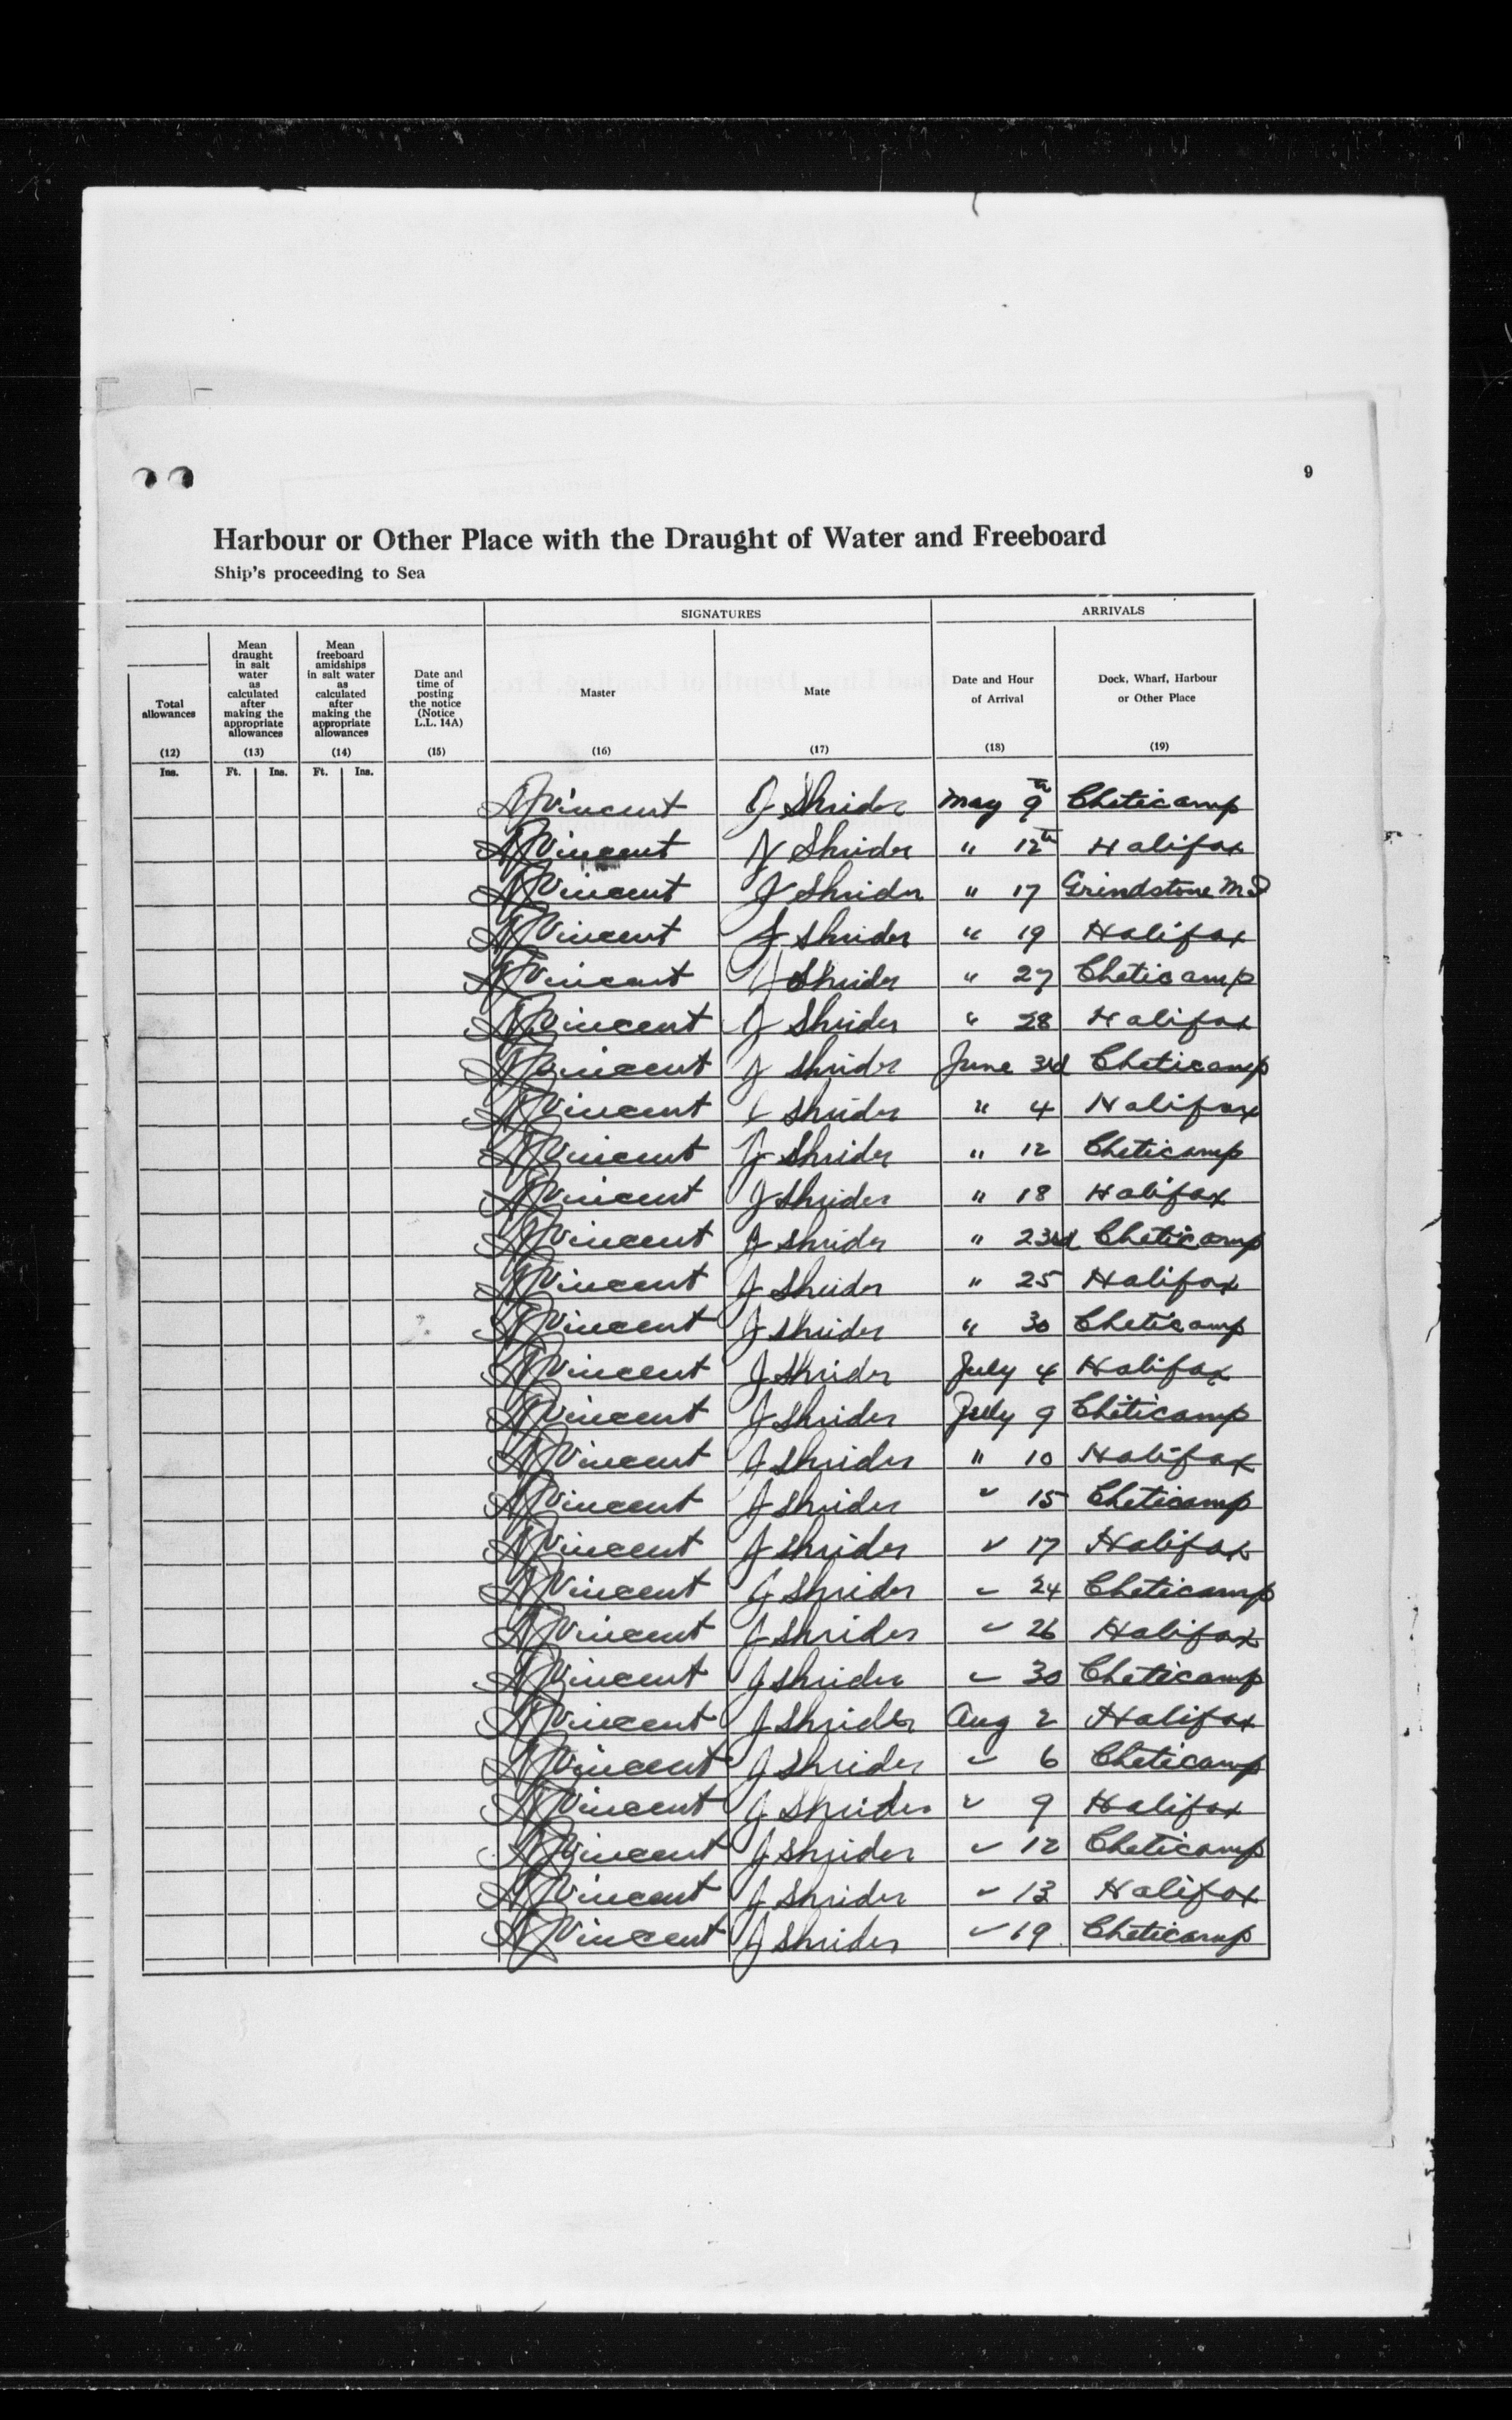 9
Harbour or Other Place with the Draught of Water and Freeboard
Ship's proceeding to Sea
SIGNATURES ARRIVALS
Total allowances Mean draught in salt water as calculated after making the appropriate allowances Mean freeboard amidships in salt water as calculated after making the appropriate allowances Date and time of posting the notice (Notice L.L. 14A) Master Mate Date and Hour of Arrival Dock, Wharf, Harbour or Other Place
(12) (13) (14) (15) (16) (17) (18) (19)
Ins. Ft. Ins. Ft. Ins.
Vincent J Shrider May 9th Cheticamp
Vincent J Shrider " 12th Halifax
Vincent J Shrider " 17 Grindstone M.I
Vincent J Shrider " 19 Halifax
Vincent J Shrider " 27 Cheticamp
Vincent J Shrider " 28 Halifax
Vincent J Shrider June 3rd Cheticamp
Vincent J Shrider " 4 Halifax
Vincent J Shrider " 12 Cheticamp
Vincent J Shrider " 18 Halifax
Vincent J Shrider " 23rd Cheticamp
Vincent J Shrider " 25 Halifax
Vincent J Shrider " 30 Cheticamp
Vincent J Shrider July 4 Halifax
Vincent J Shrider July 9 Cheticamp
Vincent J Shrider " 10 Halifax
Vincent J Shrider " 15 Cheticamp
Vincent J Shrider " 17 Halifax
Vincent J Shrider " 24 Cheticamp
Vincent J Shrider " 26 Halifax
Vincent J Shrider " 30 Cheticamp
Vincent J Shrider Aug 2 Halifax
Vincent J Shrider " 6 Cheticamp
Vincent J Shrider " 9 Halifax
Vincent J Shrider " 12 Cheticamp
Vincent J Shrider " 13 Halifax
Vincent J Shrider " 19 Cheticamp